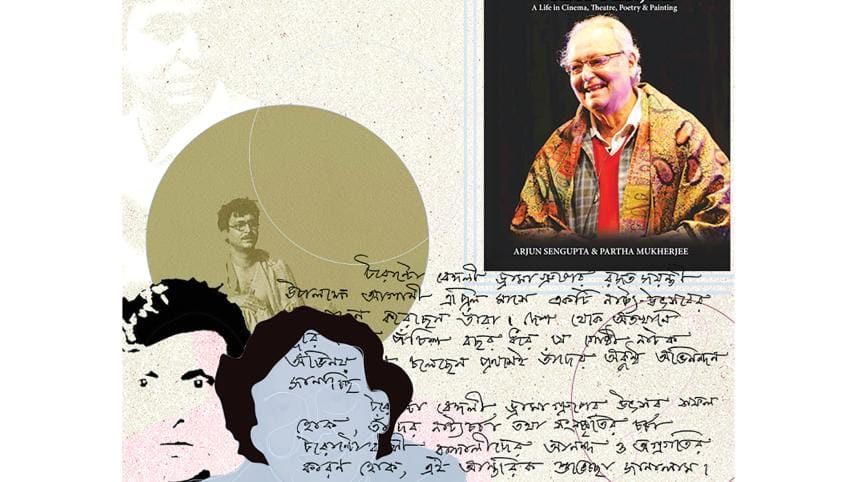 A Life in Cinema, Theatre, Poetry & Painting
ARJUN SENGUPTA & PARTHA MUKHERJEE
টরোন্টো বেঙ্গলী ড্রামা গ্রুপের রজত জয়ন্তী
উপলক্ষে আগামী এপ্রিল মাসে একটি নাট্য উৎসবের
করেছেন তাঁরা। দেশ থেকে অতখানি
দূরে পঁচিশ বছর ধরে যে গোষ্ঠী নাটক
অভিনয় চলেছেন প্রথমেই তাঁদের অকুণ্ঠ অভিনন্দন
জানাচ্ছি
বেঙ্গলী ড্রামা গ্রুপের উৎসব সফল
হোক, তাঁদের নাট্যচর্চা তথা সংস্কৃতির চর্চা
বাঙ্গালীদের আনন্দ ও অগ্রগতির
কারণ হোক, এই আন্তরিক শুভেচ্ছা জানালাম।